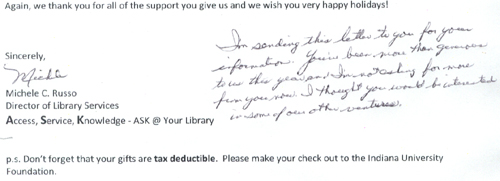 Again, we thank you for all of the support you give us and we wish you very happy holidays!
I'm sending this letter to you for your
information. You've been more than generous
to us this year and I'm not asking for more
from you now. I thought you would be interested
in some of our other ventures.
Sincerely,
Michele
Michele C. Russo
Director of Library Services
Access, Service, Knowledge - ASK @ Your Library
p.s. Don't forget that your gifts are tax deductible. Please make your check out to the Indiana University
Foundation.